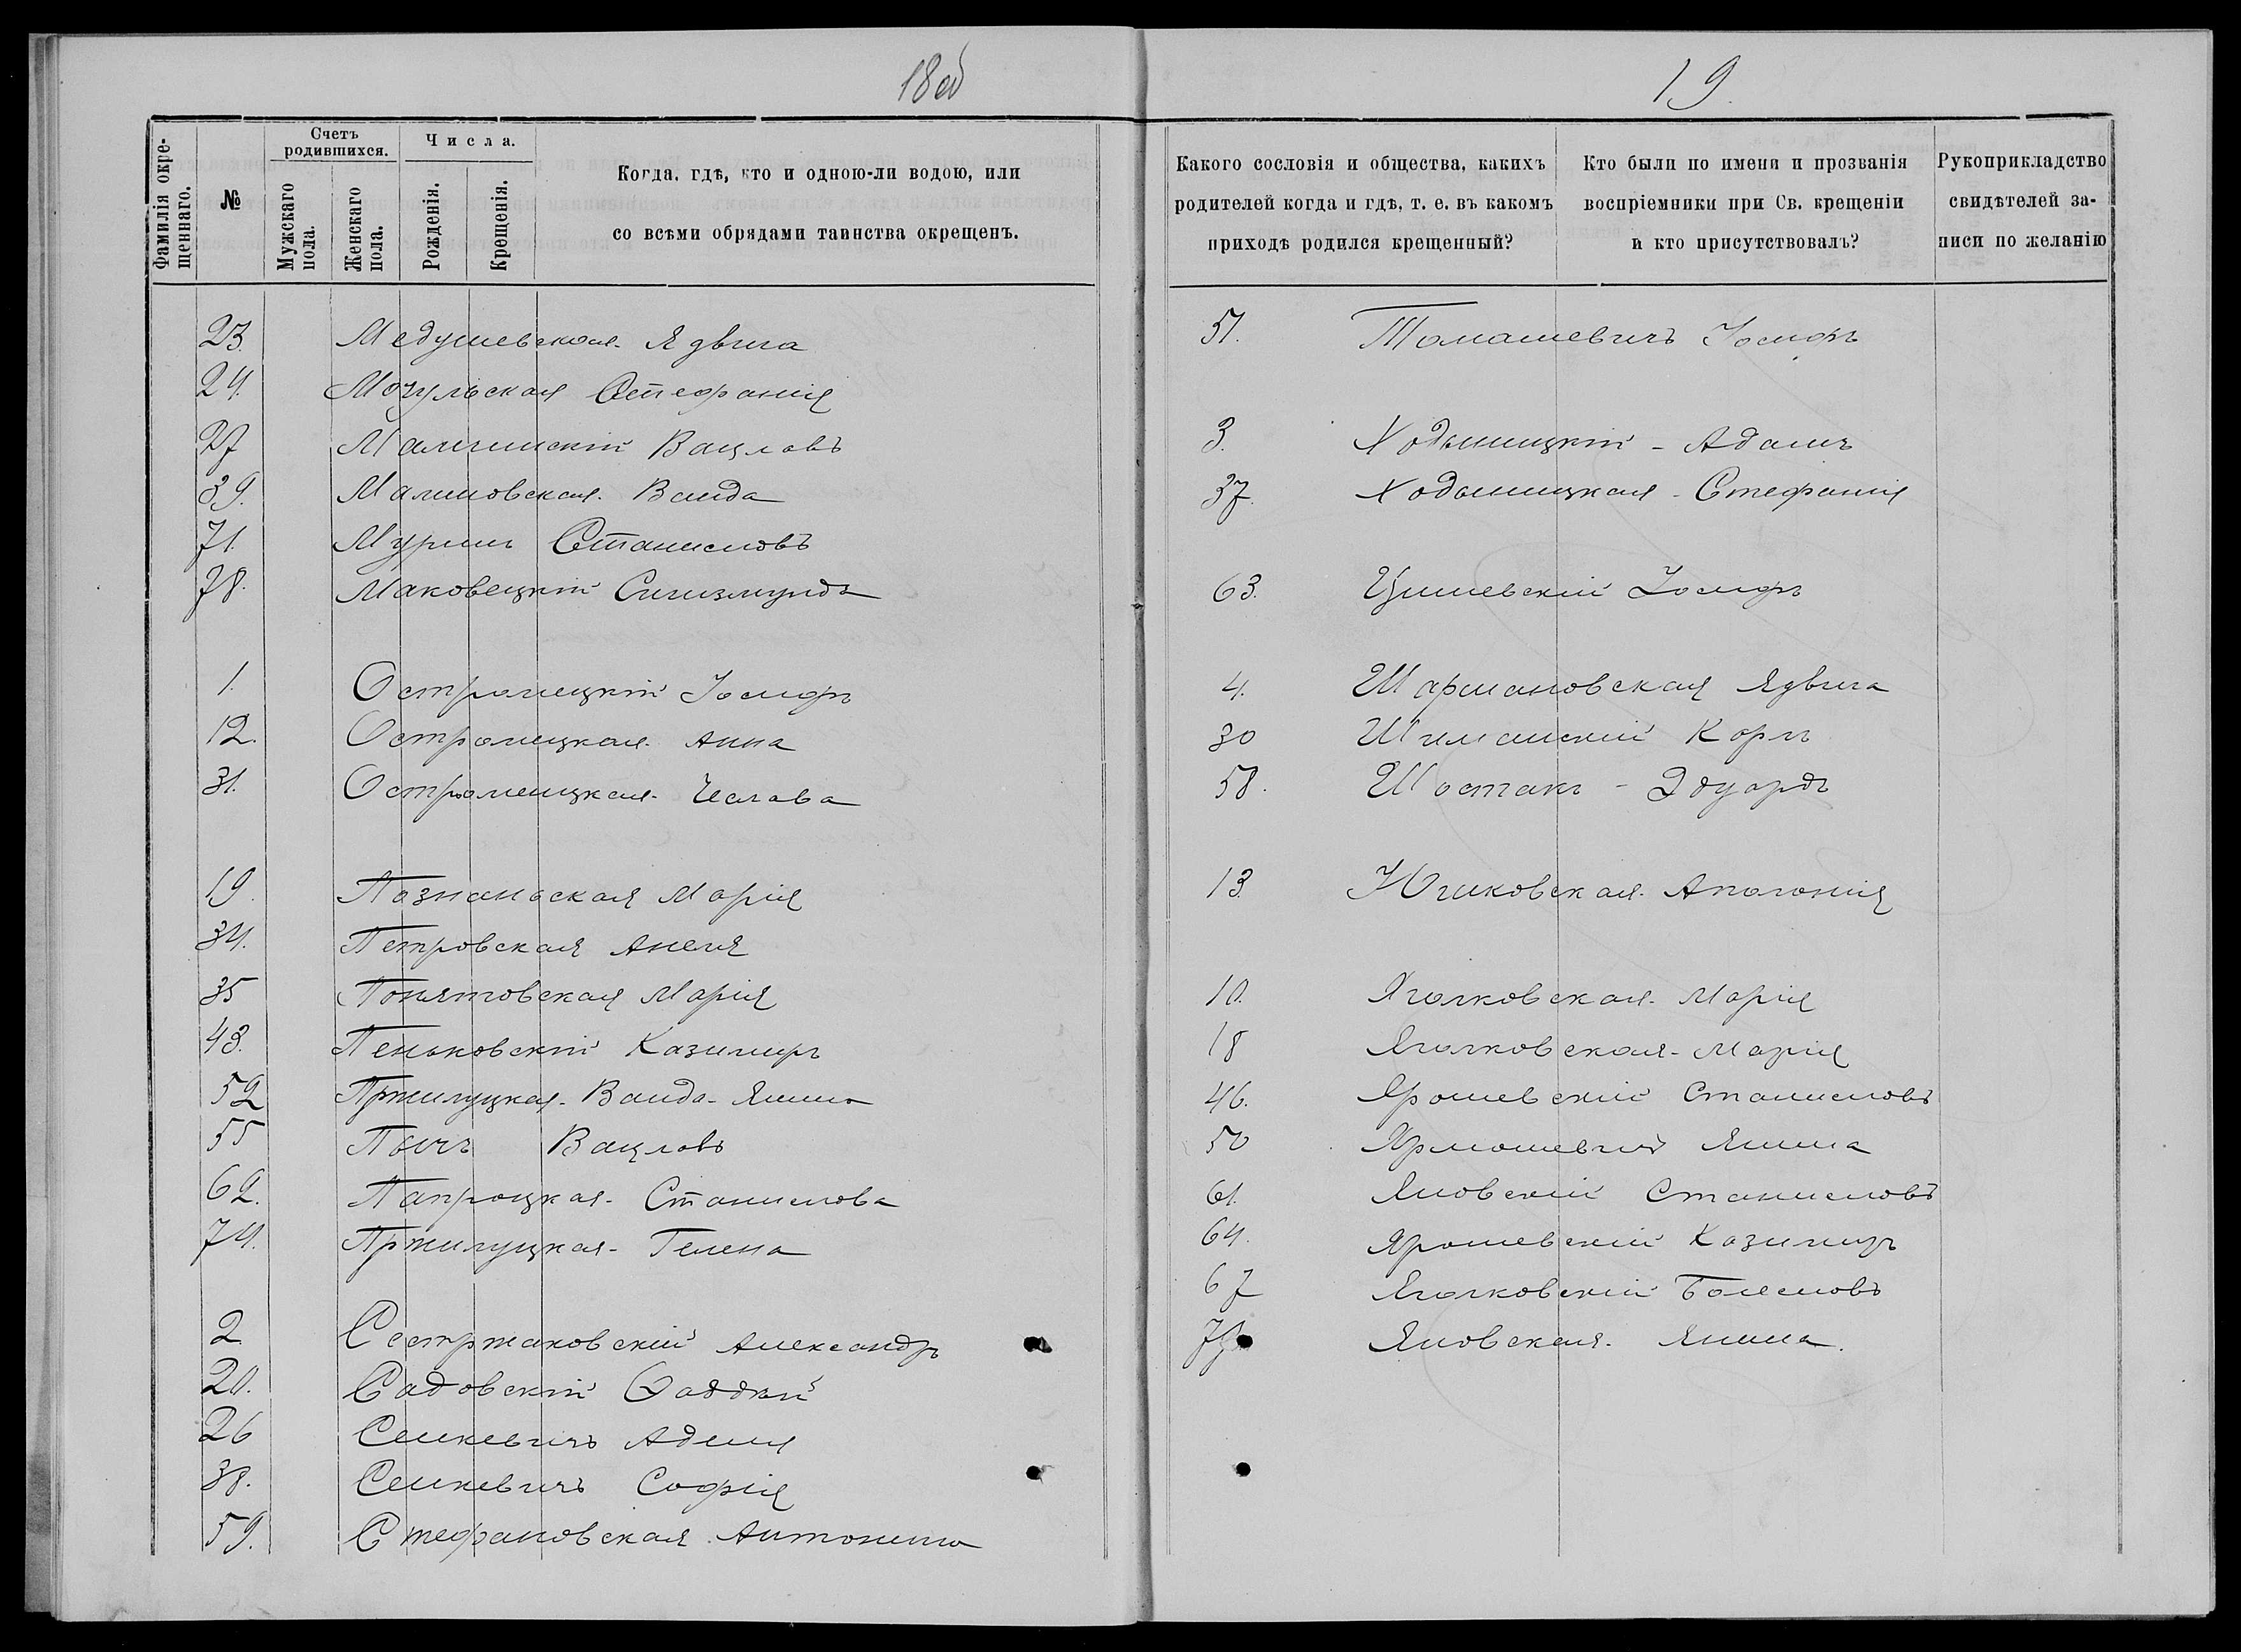 18об
Фамилія окре-
щеннаго.
№
Счетъ
родившихся.
Мужскаго
пола.
Женскаго
пола.
Числа.
Рожденія.
Крещенія.
Когда, гдѣ, кто и одною-ли водою, или
со всѣми обрядами таинства окрещенъ.
23. Медушевская Ядвига
24. Мочульская Стефанія
27 Вацлавъ
39. Малиновская Ванда
71. Станиславъ
78. Маковецкій Сигизмундъ
1. Остромецкій Іосифъ
12. Остромецкая Анна
31. Остромецкая Чеслава
19. Познанская Марія
34. Петровская Анеля
35 Понятовская Марія
43. Пеньковскій Казимиръ
52 Пржилуцкая Ванда-Янина
55 Пычъ Вацлавъ
62. Папроцкая Станислава
74. Пржилуцкая Гелена
2 Сестржаковскій Александръ
20. Садовскій Ѳаддѣй
26 Сенкевичъ Аделя
38. Сенкевичъ Софія
59. Стефановская Антонина
19.
Какого сословія и общества, какихъ
родителей когда и гдѣ, т. е. въ какомъ
приходѣ родился крещенный?
Кто были по имени и прозванія
воспріемники при Св. крещеніи
и кто присутствовалъ?
Рукоприкладство
свидѣтелей за-
писи по желанію
51. Томашевичъ Іосифъ
3. Ходыницкій - Адамъ
37. Ходыницкая - Стефанія
63. Іосифъ
4. Шармановская Ядвига
30 Шиманскій Карлъ
58. Шостакъ - Эдуардъ
13 Апполонія
10. Яголковская Марія
18 Яголковская - Марія
46. Ярошевскій Станиславъ
50 Ярмошевичъ Янина
61. Яновскій Станиславъ
64. Ярошевскій Казимиръ
67 Яголковскій Болеславъ
Яновская Янина.